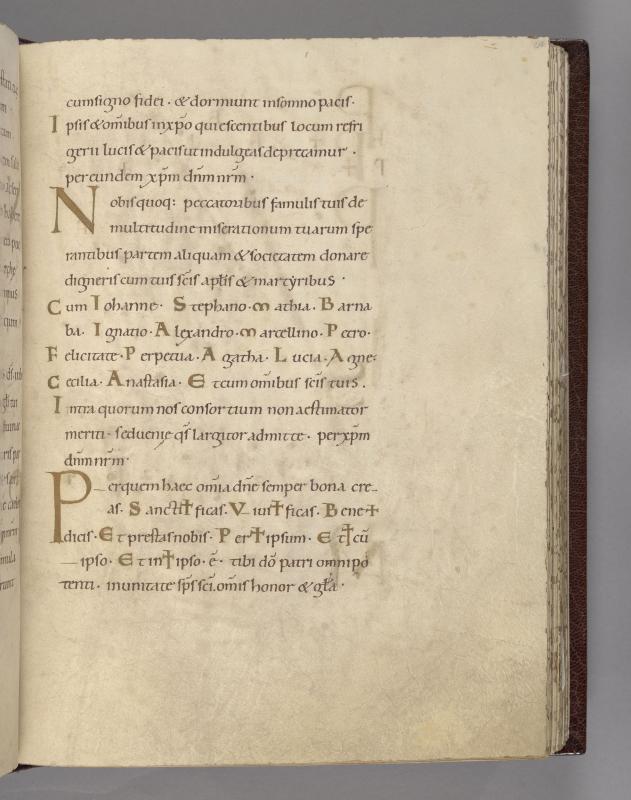 cum signo fidei · & dormiunt in somno pacis ·
Ipsis & om̄ibus in xp̄o quiescentibus locum refri
gerii lucis & pacis ut indulgeas deprecamur ·
per eundem xp̄m dn̄m nr̄m ·
Nobis quoq: peccatoribus famulis tuis de
multitudine miserationum tuarum spe
rantibus partem aliquam & societatem donare
digneris cum tuis sc̄is apl̄is & martyribus ·
Cum Iohanne · Stephano · Mathia · Barna
ba · Ignatio · Alexandro · Marcellino · Petro ·
Felicitate · Perpetua · Agatha · Lucia · Agne
Cecilia · Anastasia · Et cum om̄ibus sc̄is tuis .
Intra quorum nos consortium non aestimator
meriti · sed venię q̄s largitor admitte · per xp̄m
dn̄m nr̄m ·
Per quem haec om̄ia dn̄e semper bona cre
as · Sancti✝ficas · Vivi✝ficas · Bene✝
dicis · Et prestas nobis · Per✝ipsum · Et✝cū
ipso · Et in✝ipso · ē · tibi dō patri omnipo
tenti · in unitate sp̄s sc̄i . om̄is honor & gl̄a ·